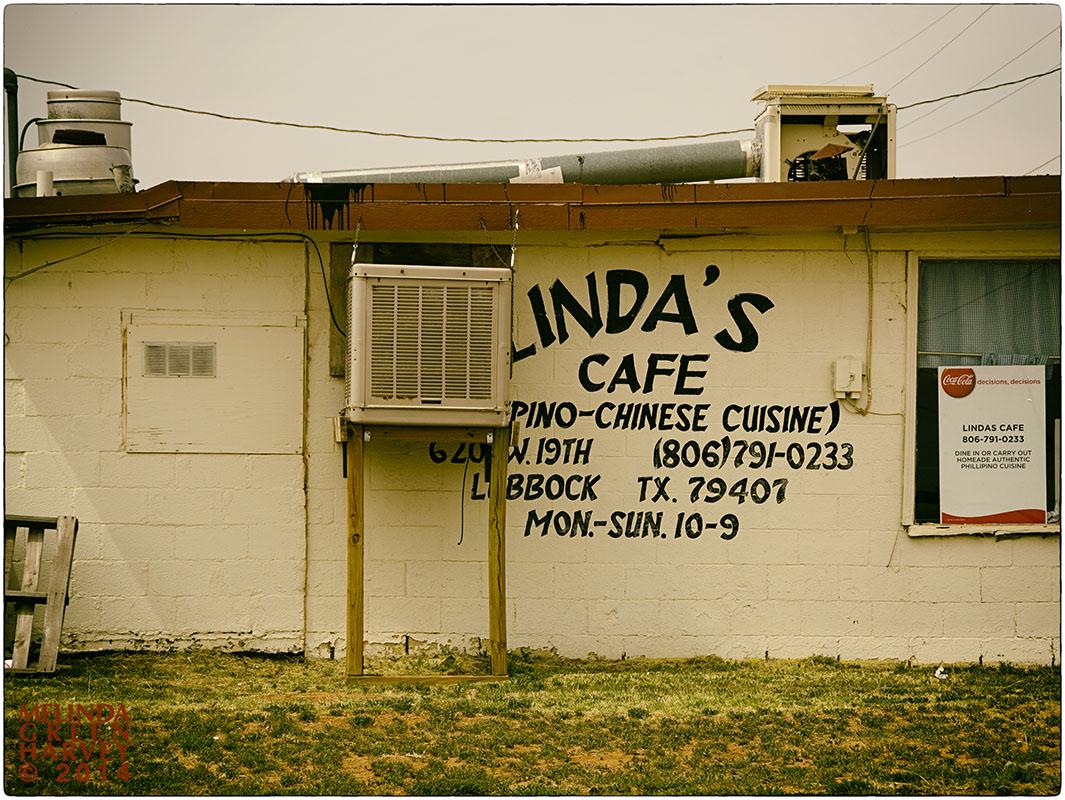 LINDA'S
CAFE
PINO-CHINESE CUISINE)
W. 19TH (806)791-0233
LUBBOCK TX. 79407
MON.-SUN. 10-9
Coca-Cola decisions, decisions
LINDAS CAFE
806-791-0233
DINE IN OR CARRY OUT
HOMEADE AUTHENTIC
PHILLIPINO CUISINE
MELINDA
GREEN
HARVEY
© 2014